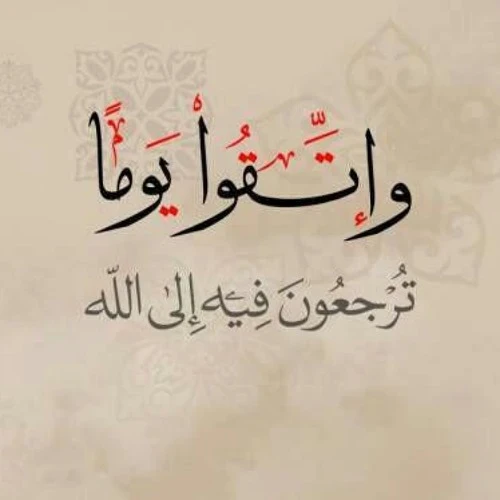 وإتَّقُواْ يَوْمًا
تُرْجَعُونَ فِيهِ إِلىٰ اللّه